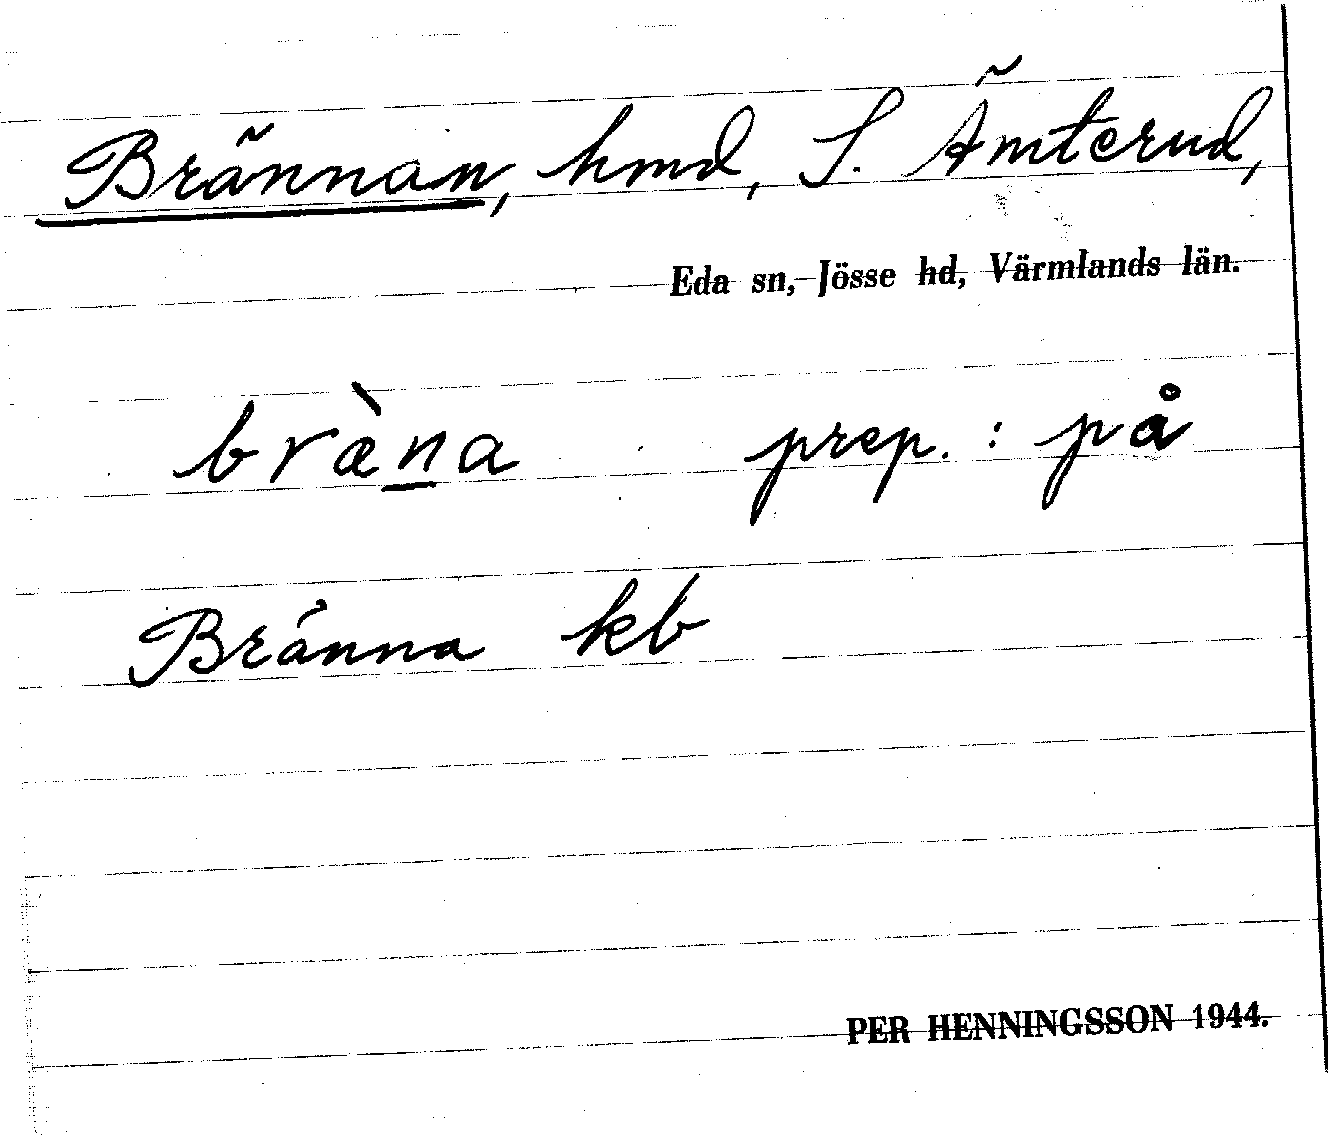 Brännan, hmd, S. Ämterud,
Eda sn, Jösse hd, Värmlands län.
bræ̀na prep. : på
Bränna kb
PER HENNINGSSON 1944.